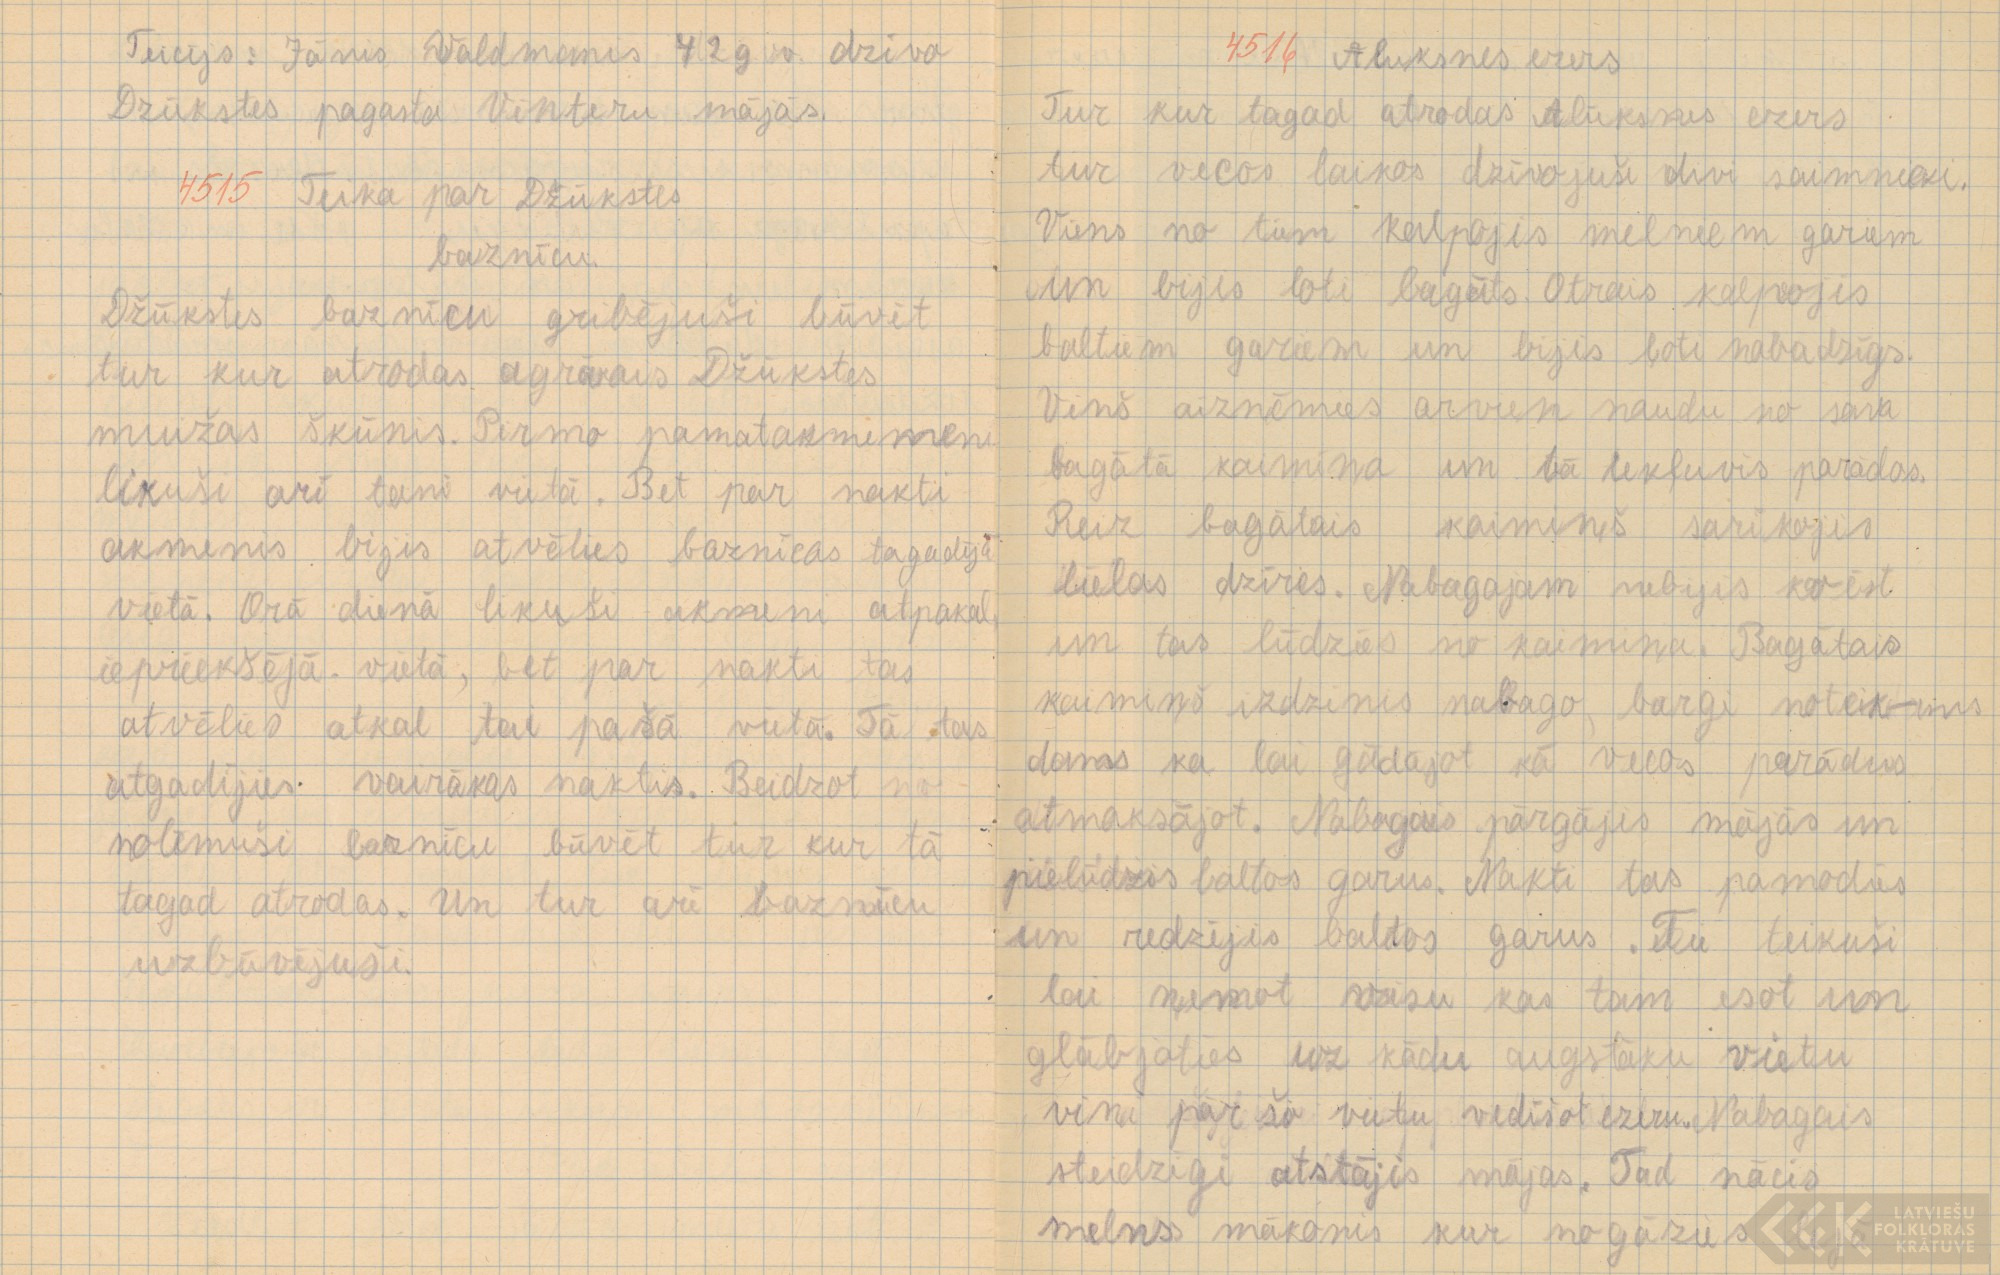 Teicējs: Jānis Valdmanis 42 g v. dzīvo
Džūkstes pagasta Vinteru mājās.
4515 Teika par Džūkstes
baznīcu.
Džūkstes baznīcu gribējuši būvēt
tur kur atrodas agrākais Džūkstes
muižas škūnis. Pirmo pamatakmemeni
likuši arī tanī vietā. Bet par nakti
akmenis bijis atvēlies baznīcas tagadējā
vietā. Orā dienā likuši akmeni atpakaļ,
iepriekšējā vietā, bet par nakti tas
atvēlies atkal tai pašā vietā. Tā tas
atgadījies vairākas naktis. Beidzot no
nolēmuši baznīcu būvēt tur kur tā
tagad atrodas. Un tur arī baznīcu
uzbūvējuši.
4516 Aluksnes ezers
Tur kur tagad atrodas Alūksnes ezers
tur vecos laikos dzīvojuši divi saimnieki.
Viens no tiem kalpojis melneem gariem
un bijis loti bagāts. Otrais kalpojis
baltiem gariem un bijis ļoti nabadzīgs.
Viņš aizņēmies arvien naudu no sava
bagātā kaimiņa un tā iekļuvis parādos.
Reiz bagātais kaimiņš sarīkojis
lielas dzīres. Nabagajam nebijis ko ēst
un tas lūdzies no kaimiņa. Bagātais
kaimiņš izdzinis nabago, bargi noteik-
dams ka lai gādājot kā vecos parādus
atmaksājot. Nabagais pārgājis mājās un
pielūdzis baltos garus. Naktī tas pamodies
un redzējis baltos garus. Tie teikuši
lai ņemot visu kas tam esot un
glābjoties uz kādu augstāku vietu
viņi pār šo vietu vedīšot ezeru. Nabagais
steidzīgi atstājis mājas. Tad nācis
melnss mākonis kur nogāzies
LATVIEŠU
FOLKLORAS
KRĀTUVE